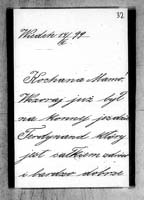 32
Wiedeń 14/II 99
Kochana Mamo!
Wczoraj już był
na konnej jeździe
Ferdynand który
jest całkiem zdrów
i bardzo dobrze